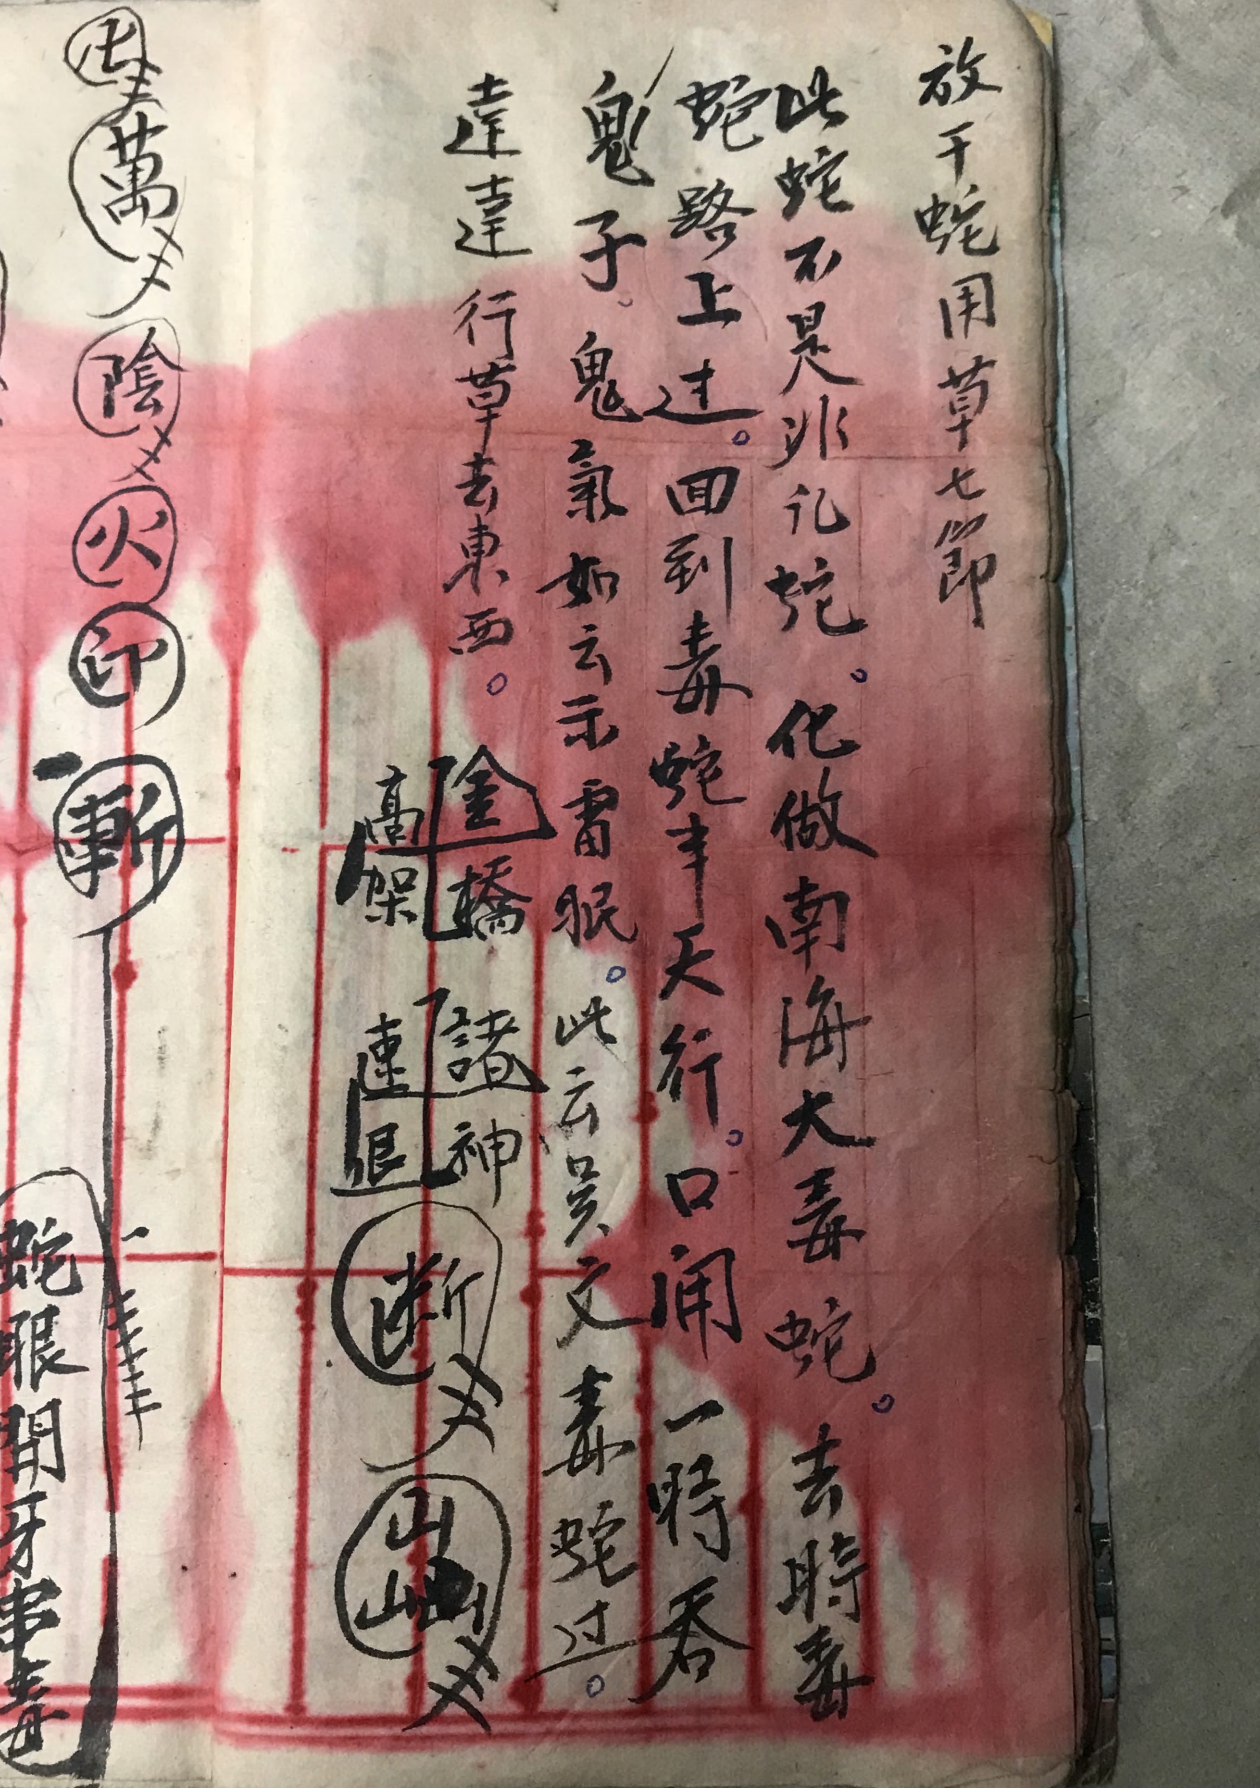 放干蛇用草七節
此蛇不是非礼蛇。化做南海大毒蛇。去時毒
蛇路上过。回到毒蛇半天行。口闹一時吞
鬼子。鬼氣如云示雷眠。此云吳文毒蛇过。
達達行草去東西。
金橋 諸神
高架 速退
断
山
山山
萬
陰
火
印
斬
蛇眼開牙串毒